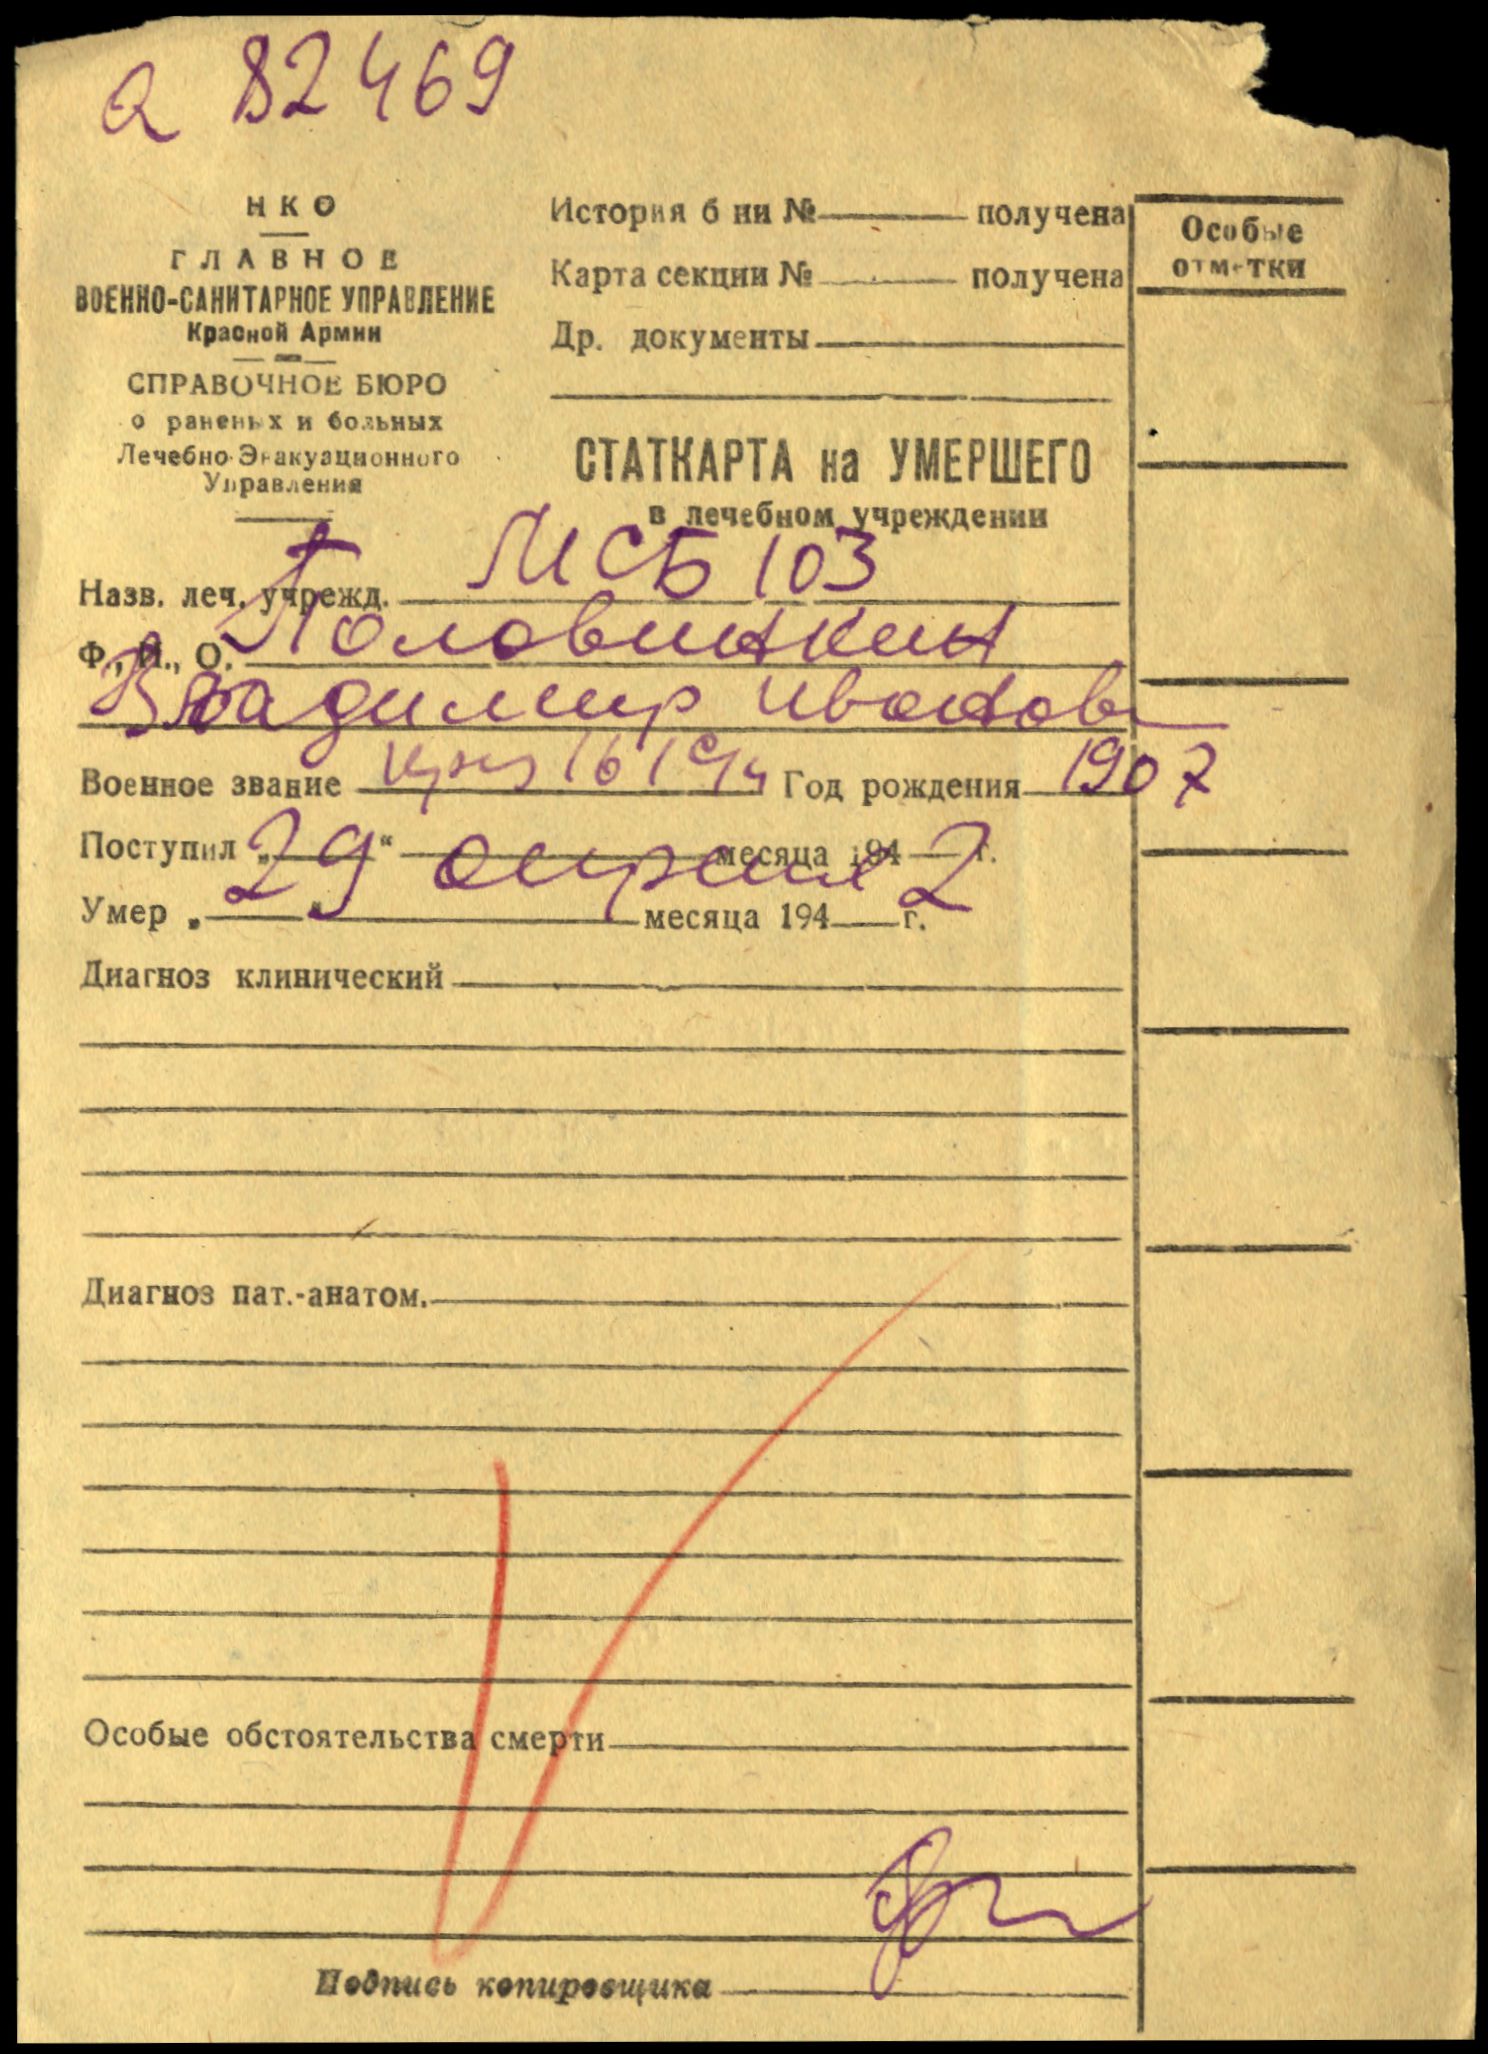 а 82469
НКО
ГЛАВНОЕ
ВОЕННО-САНИТАРНОЕ УПРАВЛЕНИЕ
Красной Армии
СПРАВОЧНОЕ БЮРО
о раненых и больных
Лечебно-Эвакуационного
Управления
История б-ни № получена
Карта секции № получена
Др. документы
Особые
отметки
СТАТКАРТА на УМЕРШЕГО
в лечебном учреждении
Назв. леч. учрежд. МСБ 103
Ф., И., О. Половинкин
Владимир Иванов
Военное звание Год рождения 1907
Поступил „29“ апреля месяца 1942 г.
Умер „ “ месяца 194 г.
Диагноз клинический
Диагноз пат.-анатом.
Особые обстоятельства смерти
Подпись копировщика